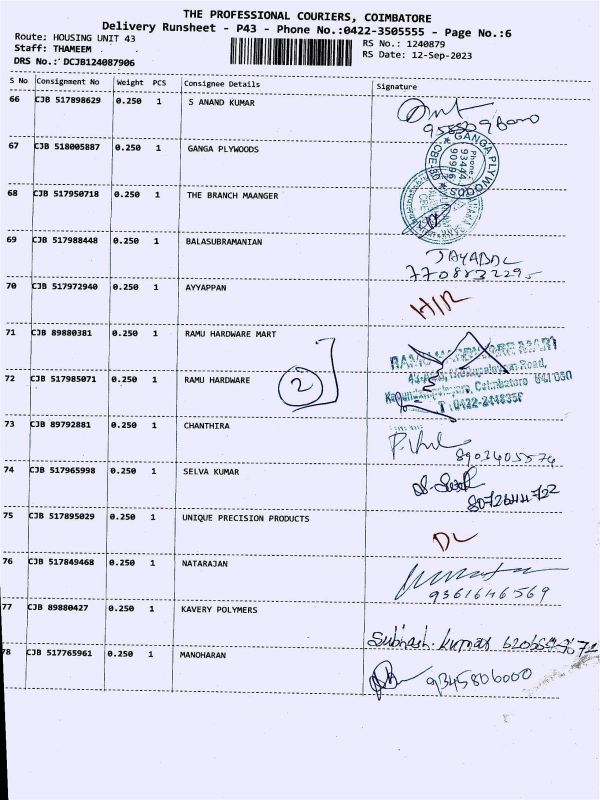 THE PROFESSIONAL COURIERS, COIMBATORE
Delivery Runsheet - P43 - Phone No.:0422-3505555 - Page No.:6
Route: HOUSING UNIT 43
RS No.: 1240879
Staff: THAMEEM
RS Date: 12-Sep-2023
DRS No.: DCJB124087906
S No Consignment No Weight PCS Consignee Details Signature
66 CJB 517898629 0.250 1 S ANAND KUMAR
67 CJB 518005887 0.250 1 GANGA PLYWOODS
GANGA PLYWOODS
Phone
93444
90996
68 CJB 517950718 0.250 1 THE BRANCH MAANGER
69 CJB 517988448 0.250 1 BALASUBRAMANIAN
JAYABAL
7708832295
70 CJB 517972940 0.250 1 AYYAPPAN
71 CJB 89880381 0.250 1 RAMU HARDWARE MART
72 CJB 517985071 0.250 1 RAMU HARDWARE 2
Coimbatore 641 030
73 CJB 89792881 0.250 1 CHANTHIRA
8903405574
74 CJB 517965998 0.250 1 SELVA KUMAR
75 CJB 517895029 0.250 1 UNIQUE PRECISION PRODUCTS
DL
76 CJB 517849468 0.250 1 NATARAJAN
9361646569
77 CJB 89880427 0.250 1 KAVERY POLYMERS
Subhash. kumar
78 CJB 517765961 0.250 1 MANOHARAN
9345806000